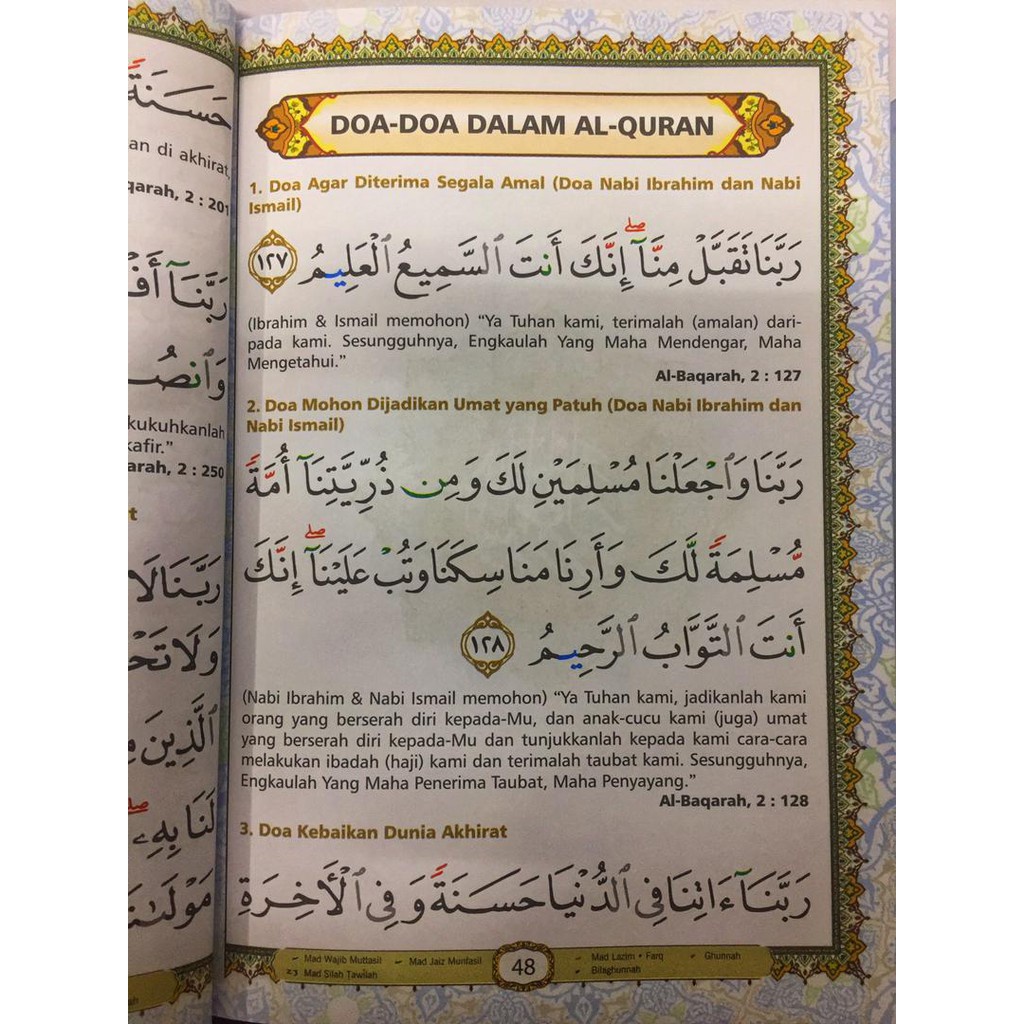 DOA-DOA DALAM AL-QURAN
1. Doa Agar Diterima Segala Amal (Doa Nabi Ibrahim dan Nabi
Ismail)
رَبَّنَا تَقَبَّلْ مِنَّآ ۖ إِنَّكَ أَنتَ ٱلسَّمِيعُ ٱلْعَلِيمُ ١٢٧
(Ibrahim & Ismail memohon) “Ya Tuhan kami, terimalah (amalan) dari-
pada kami. Sesungguhnya, Engkaulah Yang Maha Mendengar, Maha
Mengetahui.”
Al-Baqarah, 2 : 127
2. Doa Mohon Dijadikan Umat yang Patuh (Doa Nabi Ibrahim dan
Nabi Ismail)
رَبَّنَا وَٱجْعَلْنَا مُسْلِمَيْنِ لَكَ وَمِن ذُرِّيَّتِنَآ أُمَّةً
مُّسْلِمَةً لَّكَ وَأَرِنَا مَنَاسِكَنَا وَتُبْ عَلَيْنَآ ۖ إِنَّكَ
أَنتَ ٱلتَّوَّابُ ٱلرَّحِيمُ ١٢٨
(Nabi Ibrahim & Nabi Ismail memohon) “Ya Tuhan kami, jadikanlah kami
orang yang berserah diri kepada-Mu, dan anak-cucu kami (juga) umat
yang berserah diri kepada-Mu dan tunjukkanlah kepada kami cara-cara
melakukan ibadah (haji) kami dan terimalah taubat kami. Sesungguhnya,
Engkaulah Yang Maha Penerima Taubat, Maha Penyayang.”
Al-Baqarah, 2 : 128
3. Doa Kebaikan Dunia Akhirat
رَبَّنَآ ءَاتِنَا فِي ٱلدُّنْيَا حَسَنَةً وَفِي ٱلْأَخِرَةِ
Mad Wajib Muttasil Mad Jaiz Munfasil
Mad Silah Tawilah
48
Mad Lazim • Farq Ghunnah
Bilaghunnah
حَسَنَةً
an di akhirat,
qarah, 2 : 201
رَبَّنَآ
kukuhkanlah
kafir.”
arah, 2 : 250
رَبَّنَا لَا
وَلَا
ٱلَّذِينَ
لَنَا بِهِۦ